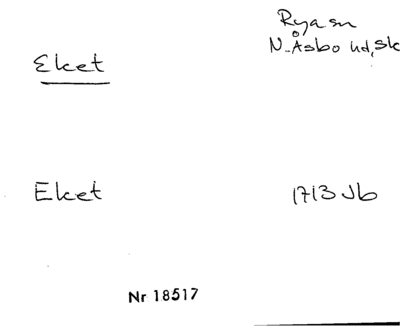 Rya sn
N. Åsbo hd, Sk
Eket
Eket
1713 Jb
Nr 18517